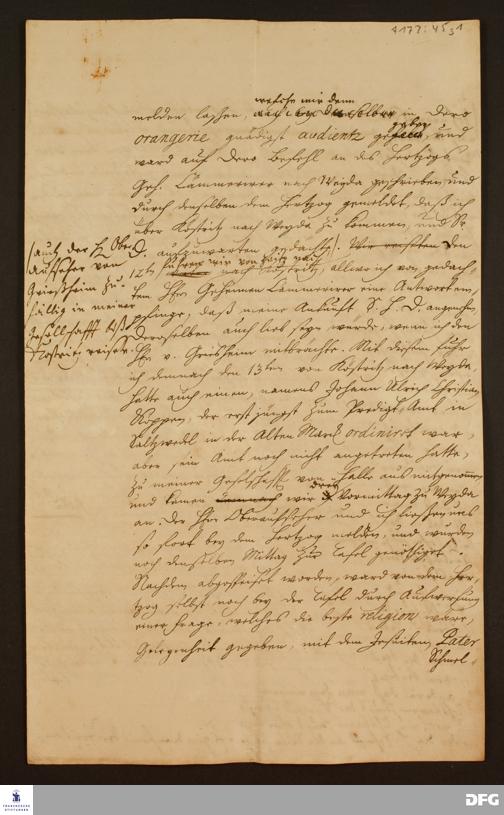 welche mir denn
melden laßen, in Dero
orangerie gnädigst audientz gegeben, und
ward auf Dero Befehl an des Hertzogs
Geh. Cämmerirer nach Weyda geschrieben, und
durch denselben dem Hertzog gemeldet, daß ich
über Köstritz nach Weyda zu kommen, und Sr.
D. aufzuwarten gedächte. Den
12ten fuhren wir von Zeitz nach
Köstritz, allwo ich von gedach-
tem Hrn Geheimen Cämmerirer eine Antwort em-
pfinge, daß meine Ankunft S. H. D. angenehm,
Deroselben auch lieb seyn würde, wenn ich den
Hrn v. Griesheim mitbrächte. Mit diesem fuhr
ich demnach den 13ten von Köstritz nach Weyda,
hatte auch einen, namens Johann Ulrich Christian
Köppen, der erst jüngst zum Predigt-Amt in
Saltzwedel in der Alten Marck ordiniret war,
aber sein Amt noch nicht angetreten hatte,
zu meiner Gesellschafft von Halle aus mitgenommen
und kamen wir drey Vormittag zu Weyda
an. Der Herr Oberaufseher und ich ließen uns
so fort bey dem Hertzog melden, und wurden
noch denselben Mittag zur Tafel genöthiget.
Nachdem abgespeiset worden, ward von dem Her-
tzog selbst noch bey der Tafel durch Aufwerfung
einer Frage, welches die beste religion wäre,
Gelegenheit gegeben, mit dem Jesuiten, Pater
Schmel-
(auch der H. Ober-
Aufseher von
Griesheim zu-
fällig in meiner
Gesellschafft biß
Köstritz reisete.
FRANCKESCHE
STIFTUNGEN
DFG